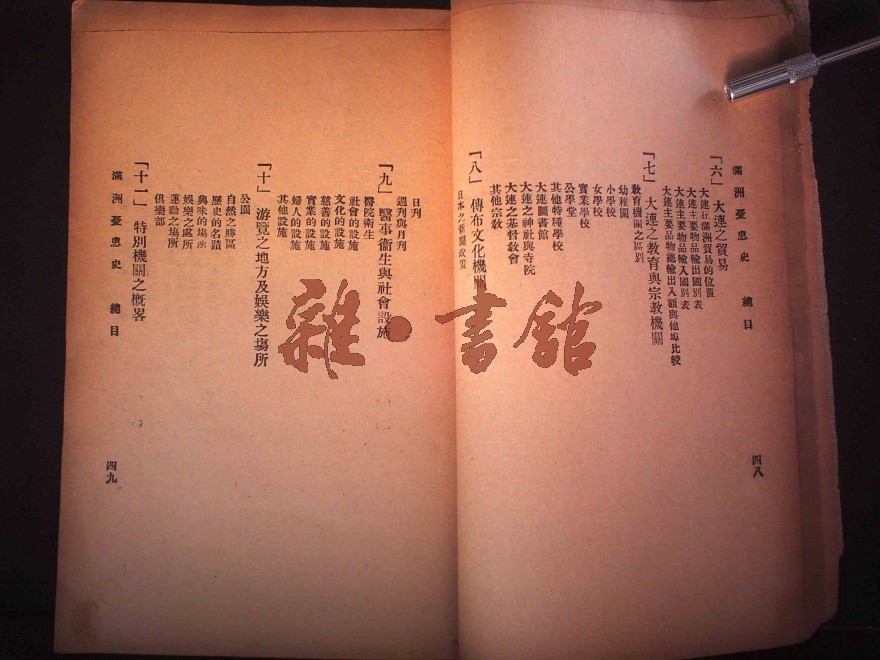 滿洲憂患史 總目
四八
「六」大連之貿易
大連在滿洲貿易的位置
大連主要物品輸出國別表
大連主要物品輸入國別表
大連主要品物總輸出入額與他埠比較
「七」大連之教育與宗教機關
教育機關之區別
幼稚園
小學校
女學校
實業學校
公學堂
其他特種學校
大連圖書館
大連之神社與寺院
大連之基督教會
其他宗教
「八」傳布文化機關
日本之新聞政策
日刊
週刊與月刊
「九」醫事衞生與社會設施
醫院衞生
社會的設施
文化的設施
慈善的設施
實業的設施
婦人的設施
其他設施
「十」游覽之地方及娛樂之塲所
公園
自然之勝區
歷史的名蹟
興味的塲所
娛樂之處所
運動之塲所
俱樂部
「十一」特別機關之槪畧
滿洲憂患史 總目
四九
雜·書舘